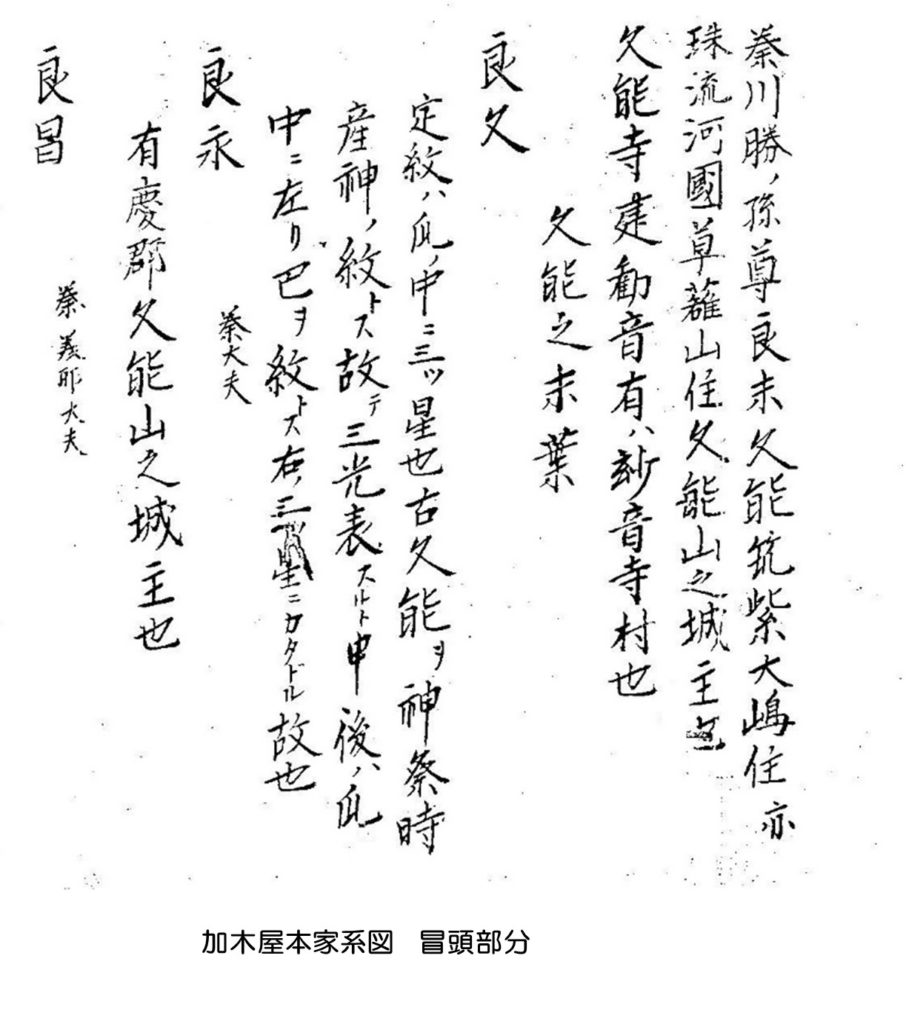 秦川勝ノ孫尊良末久能筑紫大嶋住亦
珠流河國草蘿山住久能山之城主也
久能寺建勸音有ハ紗音寺村也
久能之末葉
良久
定紋ハ瓜ノ中ニ三ッ星也古久能ヲ神祭時
産神ノ紋トス故テ三光表スルト申後ハ瓜
中ニ左リ巴ヲ紋トス右ノ三星ニカタドル故也
秦大夫
良永
有慶郡久能山之城主也
秦 大夫
良昌
加木屋本家系図 冒頭部分